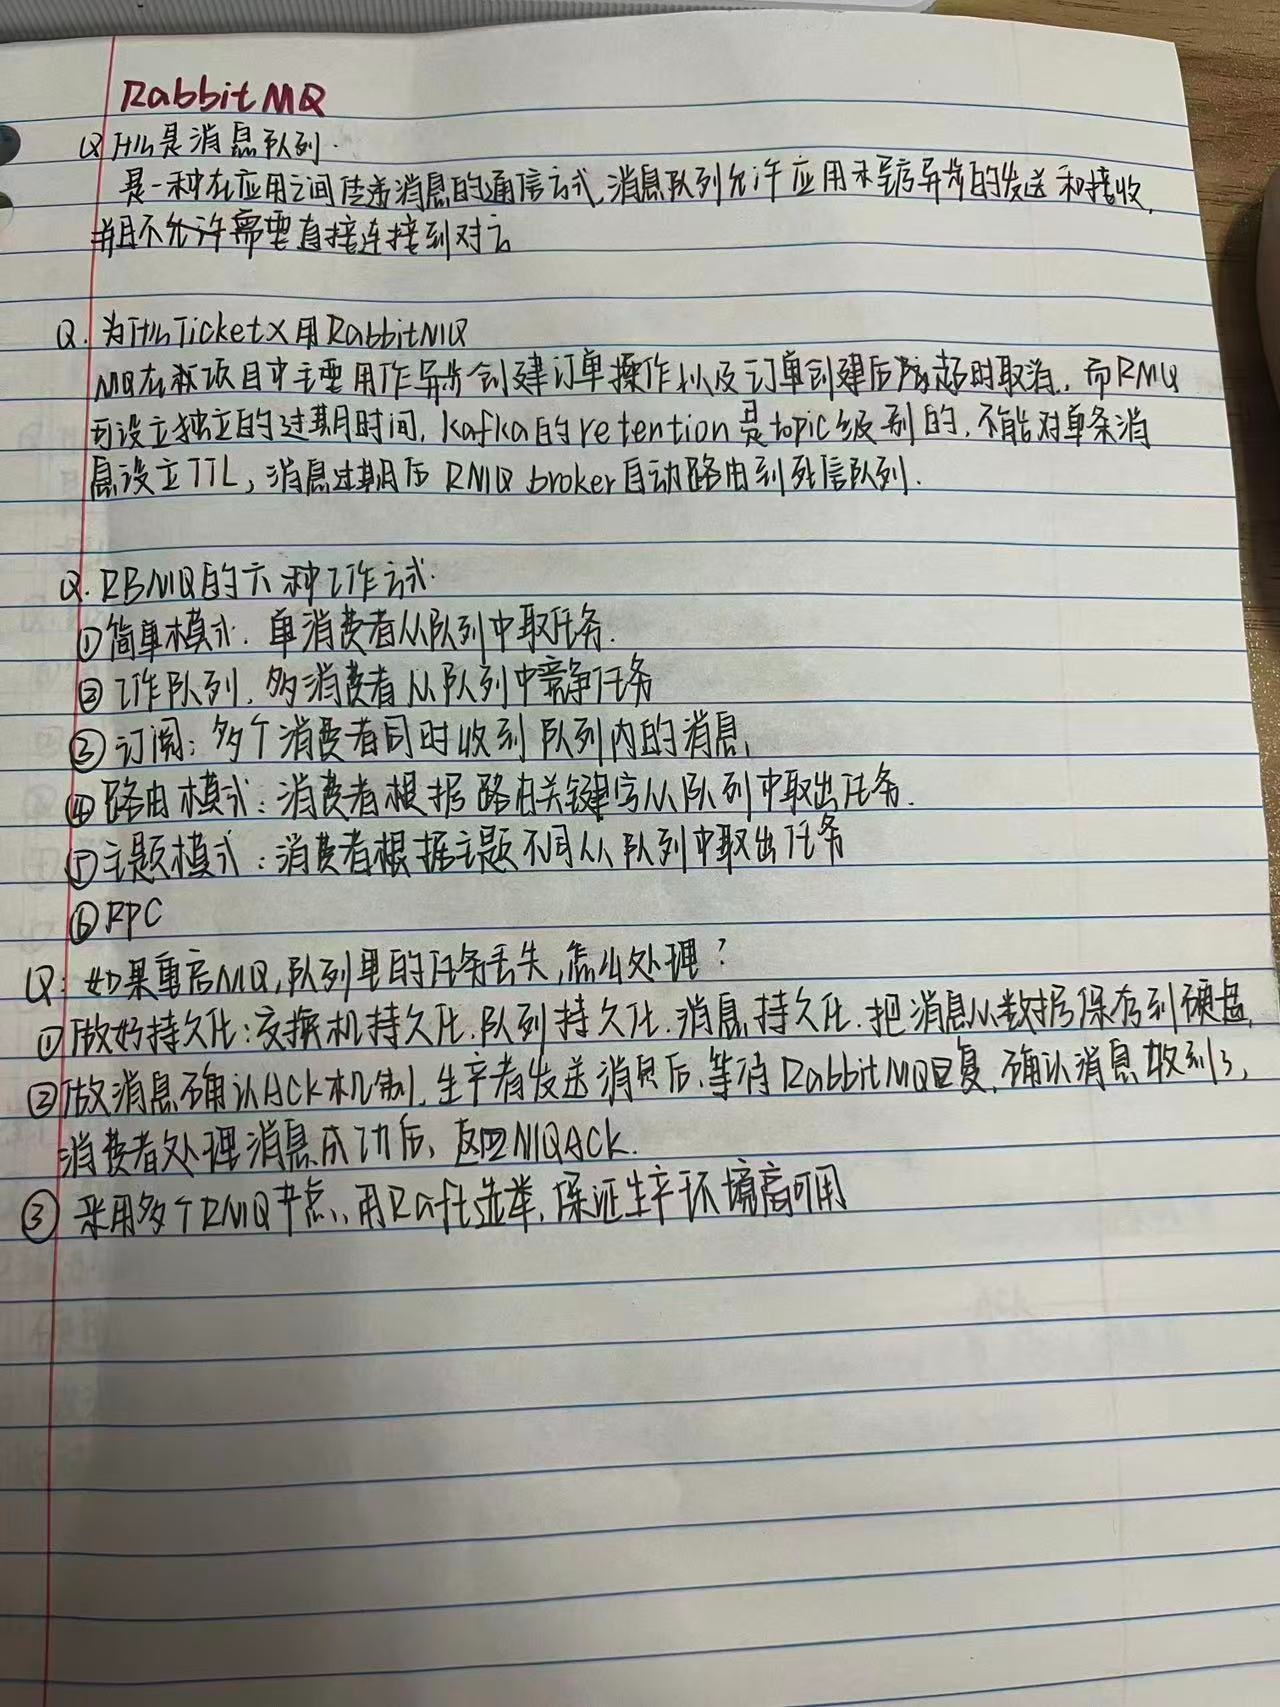 RabbitMQ
Q 什么是消息队列.
是一种在应用之间传递消息的通信方式,消息队列允许应用程序异步的发送和接收,
并且不允许需要直接连接到对方
Q. 为什么TicketX用RabbitMQ
MQ在我项目中主要用作异步创建订单操作以及订单创建后的超时取消, 而RMQ
可设立独立的过期时间, kafka的retention是topic级别的, 不能对单条消
息设立TTL, 消息过期后 RMQ broker自动路由到死信队列.
Q. RBMQ的六种工作方式.
①简单模式. 单消费者从队列中取任务.
② 工作队列, 多消费者从队列中竞争任务
③ 订阅: 多个消费者同时收到队列内的消息,
④ 路由模式: 消费者根据路由关键字从队列中取出任务.
⑤主题模式: 消费者根据主题不同从队列中取出任务
⑥ RPC
Q: 如果重启MQ,队列里的任务丢失,怎么处理?
①做好持久化:交换机持久化.队列持久化.消息持久化.把消息从数据保存到硬盘,
②做消息确认ACK机制, 生产者发送消息后,等待RabbitMQ回复,确认消息收到了,
消费者处理消息成功后, 返回MQACK.
③ 采用多个RMQ节点, 用Raft选举, 保证生产环境高可用